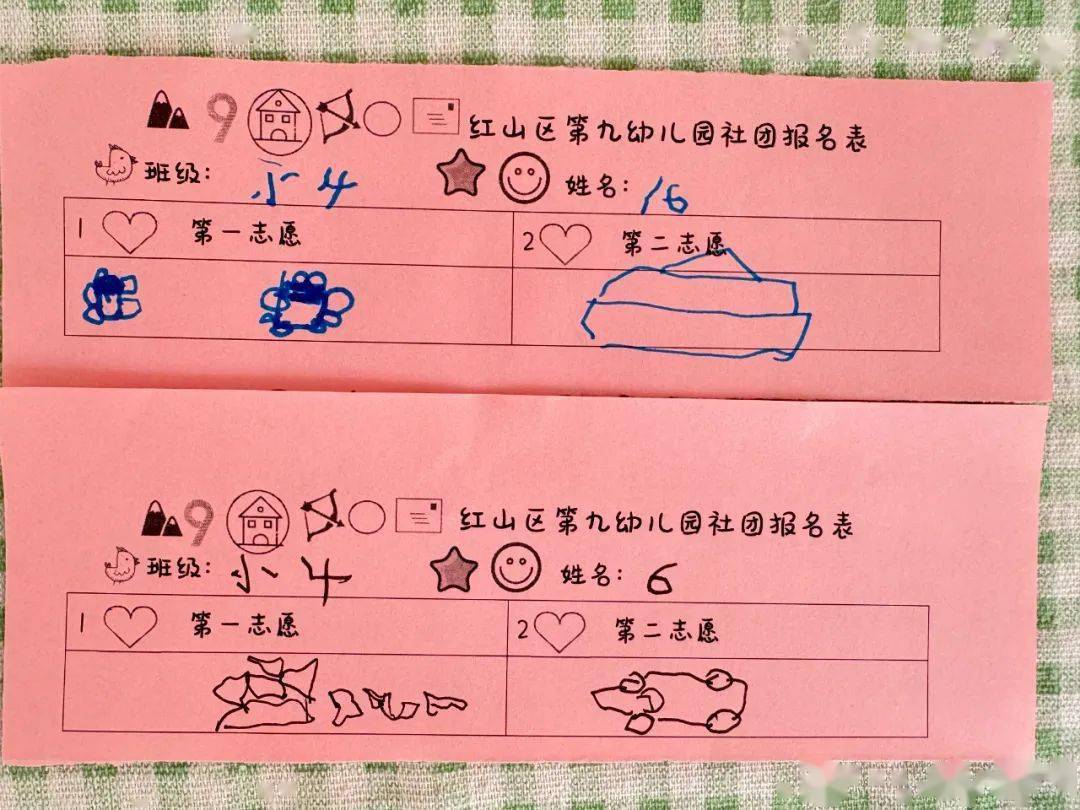 9 红山区第九幼儿园社团报名表
班级: 小4 姓名: 16
1 第一志愿 2 第二志愿
9 红山区第九幼儿园社团报名表
班级: 小4 姓名: 6
1 第一志愿 2 第二志愿